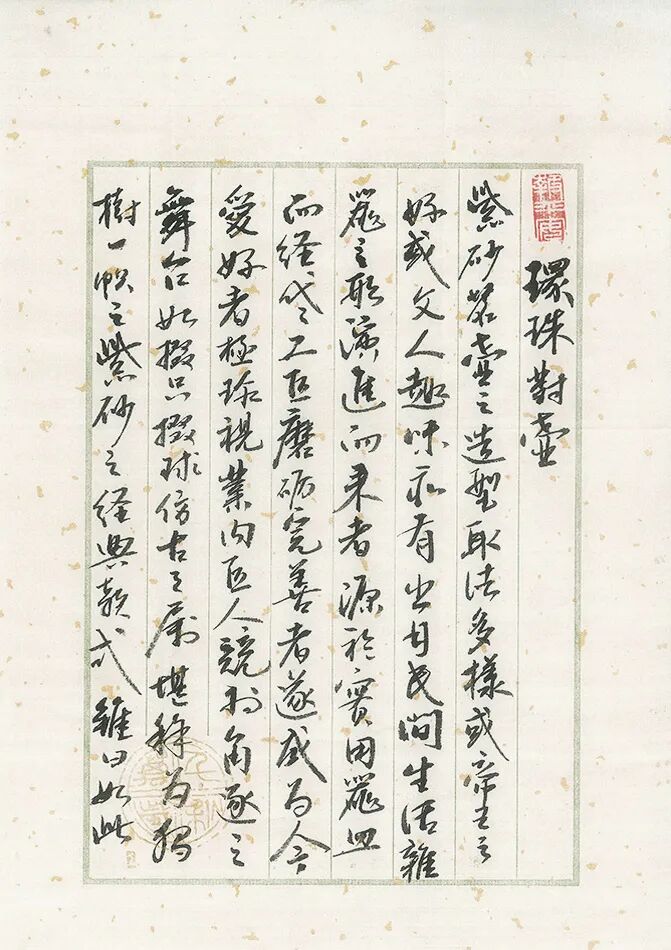 環珠對壺
紫砂茗壺之造型取法多樣或帝王之
好或文人趣味亦有出自民間生活雜
器之形演進而来者源於實用器皿
而经代代工匠磨砺完善者遂成为今
愛好者極珍視業内匠人競相角逐之
舞台如掇只掇球仿古之属堪称为独
樹一帜之紫砂之经典款式雖曰如此